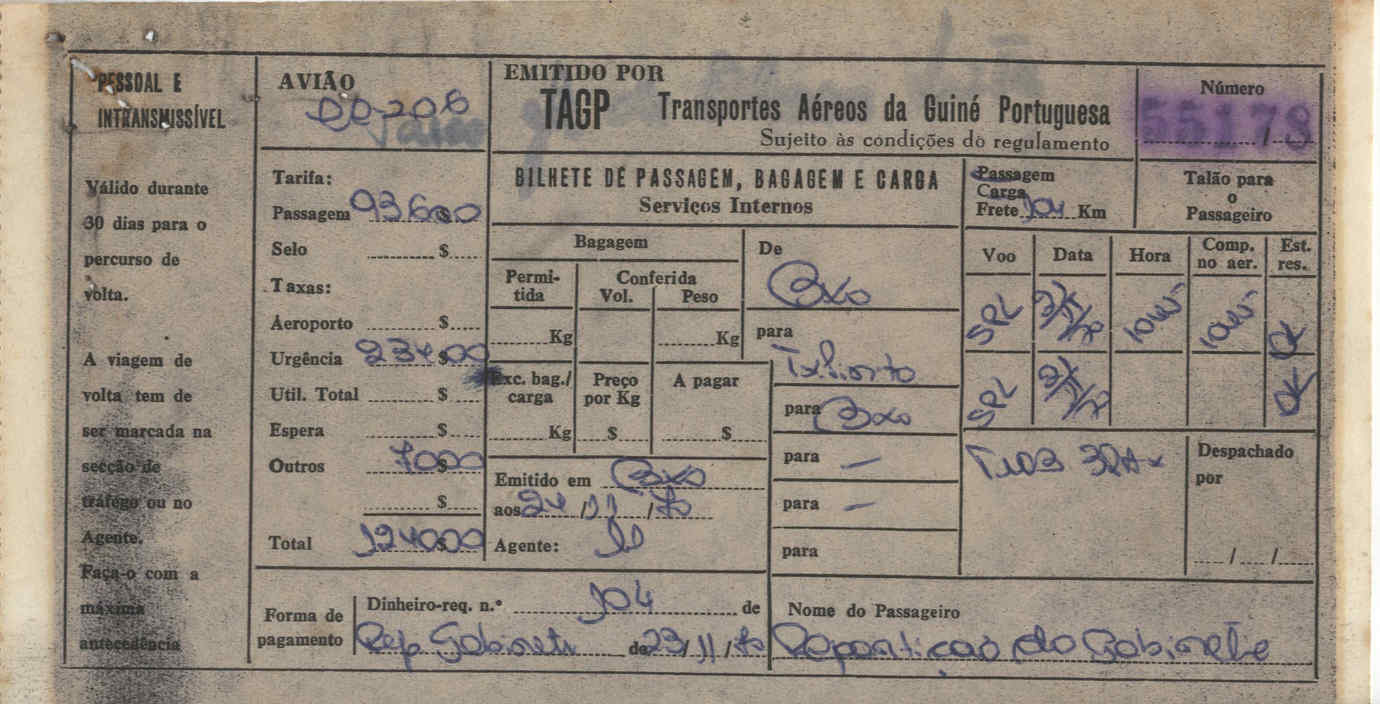 PESSOAL E
INTRANSMISSÍVEL
Válido durante
30 dias para o
percurso de
volta.
A viagem de
volta tem de
ser marcada na
secção de
tráfego ou no
Agente.
Faça-o com a
máxima
antecedência
AVIÃO
Tarifa:
Passagem 936$00
Selo $
Taxas:
Aeroporto $
Urgência 234$00
Util. Total $
Espera $
Outros 70$00
$
Total 1240$00
EMITIDO POR
TAGP Transportes Aéreos da Guiné Portuguesa
Sujeito às condições do regulamento
Número
55178
BILHETE DE PASSAGEM, BAGAGEM E CARGA
Serviços Internos
Passagem
Carga
Frete 104 Km
Talão para
o
Passageiro
Bagagem
Permi-
tida
Conferida
Vol. Peso
Kg Kg
Exc. bag./
carga
Preço
por Kg
A pagar
Kg $ $
Emitido em Bxo
aos 24/11/70
Agente:
De
Bxo
para
para Bxo
para —
para —
para
Voo Data Hora Comp.
no aer.
Est.
res.
SPL OK
SPL OK
Despachado
por
/ /
Forma de
pagamento
Dinheiro-req. n.º 104 de
Rep Gabinete de 23/11/70
Nome do Passageiro
Repartição do Gabinete